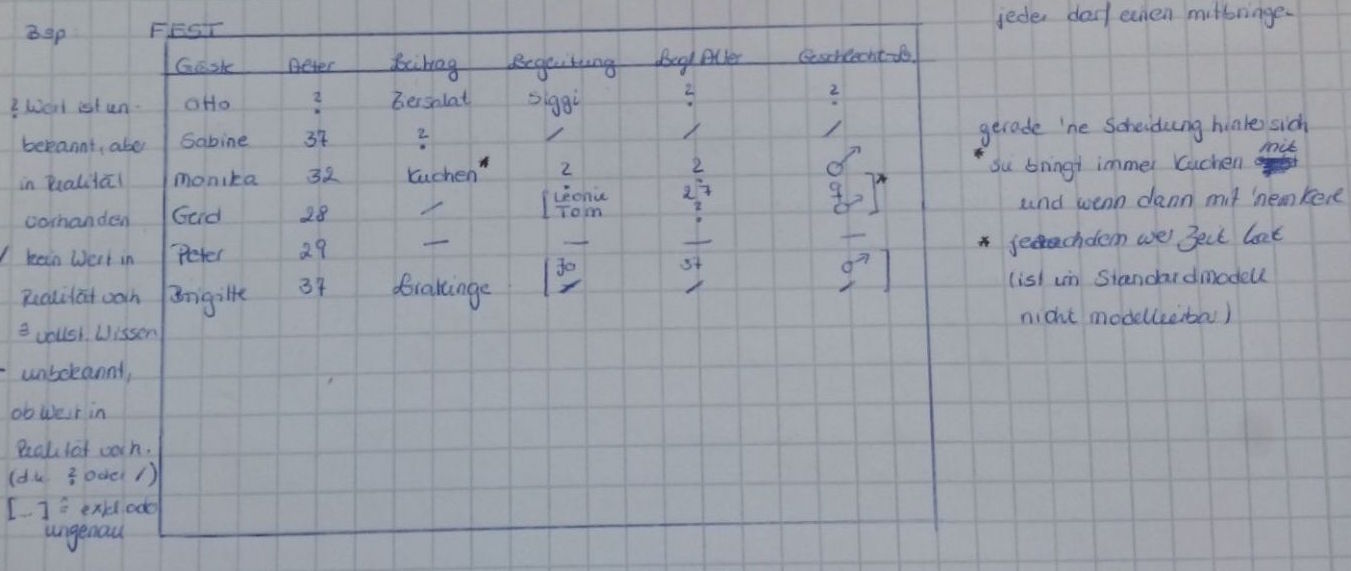 jeder darf einen mitbringen
Bsp FEST
Gäste Alter Beitrag Begleitung Begl Alter Geschlecht-B.
Otto ? Biersalat Siggi ? ?
Sabine 37 ? / / /
Monika 32 Kuchen* ? ? ♂
Gerd 28 / [Leonie 27 ♀
Tom ? ♂]*
Peter 29 — — — —
Brigitte 37 [Jo 37 ♂
/ / /]
? Wert ist un-
bekannt, aber
in Realität
vorhanden
/ kein Wert in
Realität vorh
≙ vollst. Wissen
- unbekannt,
ob Wert in
Realität vorh.
(d.h. ? oder /)
[_] ≙ exkl oder
ungenau
gerade 'ne Scheidung hinter sich
* sie bringt immer Kuchen mit
und wenn dann mit 'nem Kerl
* jenachdem wer Zeit hat
(ist im Standardmodell
nicht modellierbar)